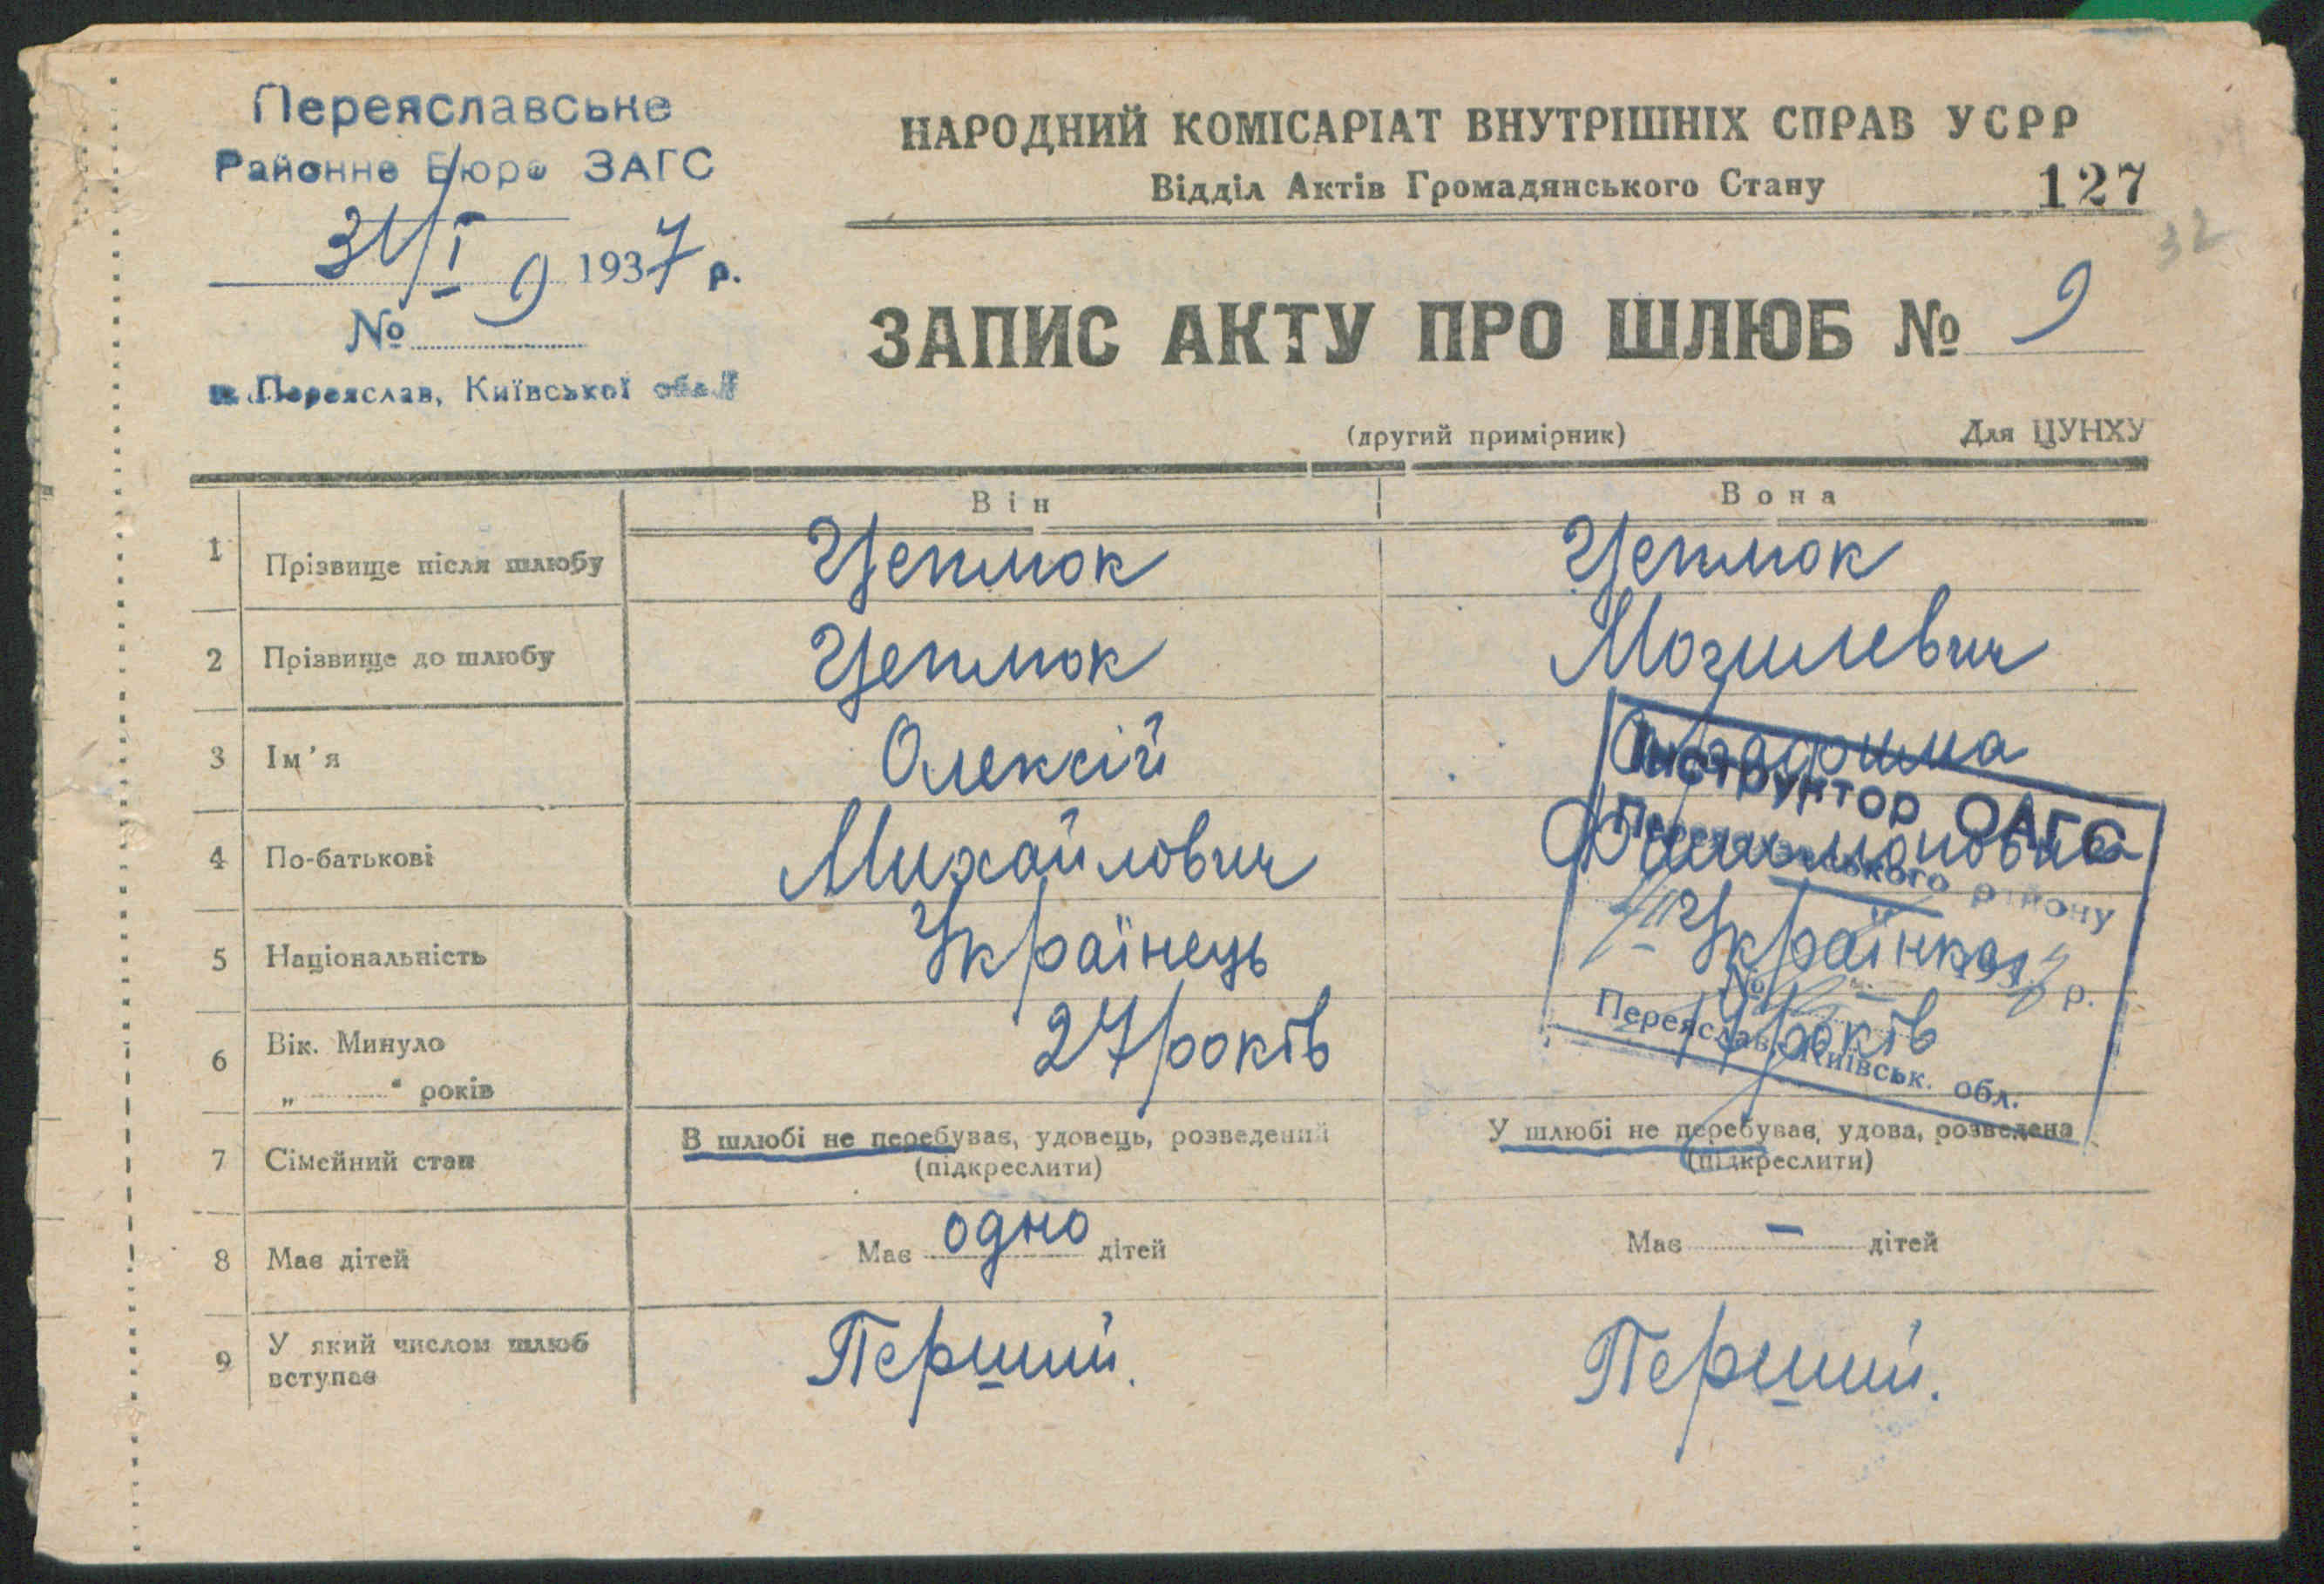 Переяславське
Районне Бюро ЗАГС
31/I 1937 р.
№ 9
м. Переяслав, Київської обл.
НАРОДНИЙ КОМІСАРІАТ ВНУТРІШНІХ СПРАВ УСРР
Відділ Актів Громадянського Стану
127
32
ЗАПИС АКТУ ПРО ШЛЮБ № 9
(другий примірник) Для ЦУНХУ
Він Вона
1 Прізвище після шлюбу Цепмок Цепмок
2 Прізвище до шлюбу Цепмок Могилевич
3 Ім'я Олексій
4 По-батькові Михайлович
5 Національність Українець Українка
6 Вік. Минуло 27 років років
„ " років
Інструктор ОАГС
Переяславського району
193 р.
№
Переяслав, Київськ. обл.
7 Сімейний стан В шлюбі не перебуває, удовець, розведений У шлюбі не перебуває, удова, розведена
(підкреслити) (підкреслити)
8 Має дітей Має одно дітей Має — дітей
9 У який числом шлюб Перший. Перший.
вступає